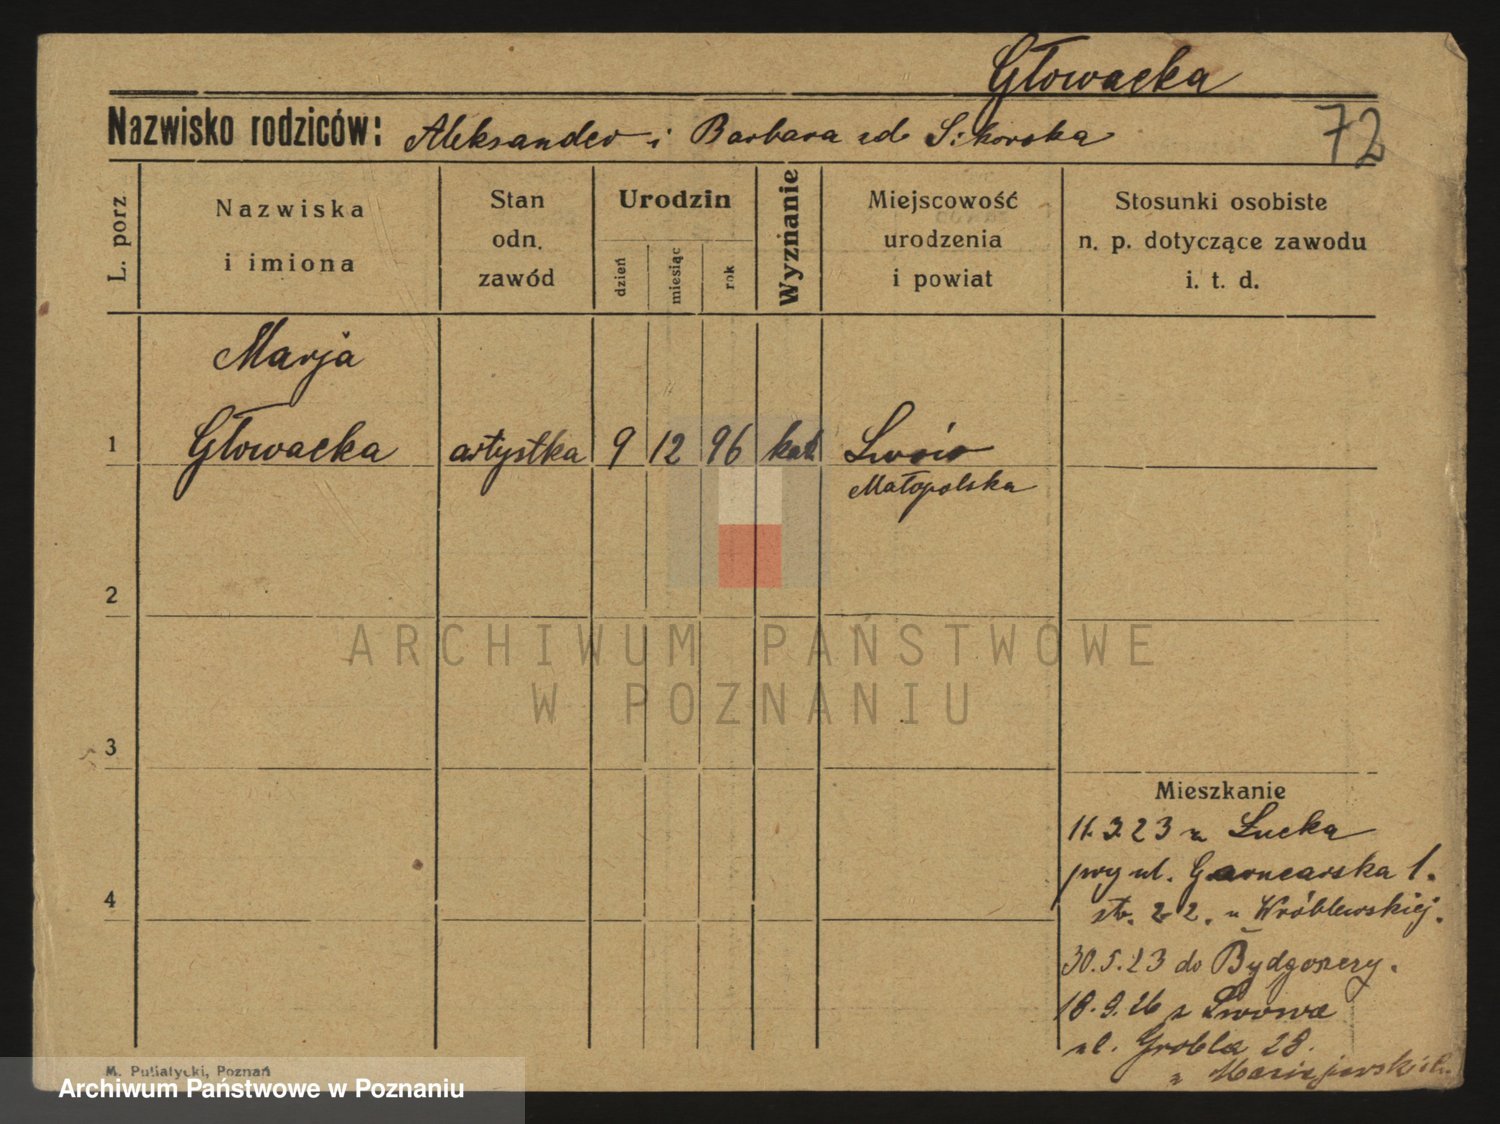 Głowacka
Nazwisko rodziców: Aleksander i Barbara zd Sikorska
72
L. porz
Nazwiska
i imiona
Stan
odn.
zawód
Urodzin
dzień
miesiąc
rok
Wyznanie
Miejscowość
urodzenia
i powiat
Stosunki osobiste
n. p. dotyczące zawodu
i. t. d.
Marja
1 Głowacka artystka 9 12 96 kat Lwów
Małopolska
2
3
4
Mieszkanie
11.3.23 z Łucka
przy ul. Garncarska 1.
u Wróblewskiej.
30.5.23 do Bydgoszczy.
18.9.26 z Lwowa
ul. Grobla 28.
M. Putiatycki, Poznań
ARCHIWUM PAŃSTWOWE
W POZNANIU
Archiwum Państwowe w Poznaniu